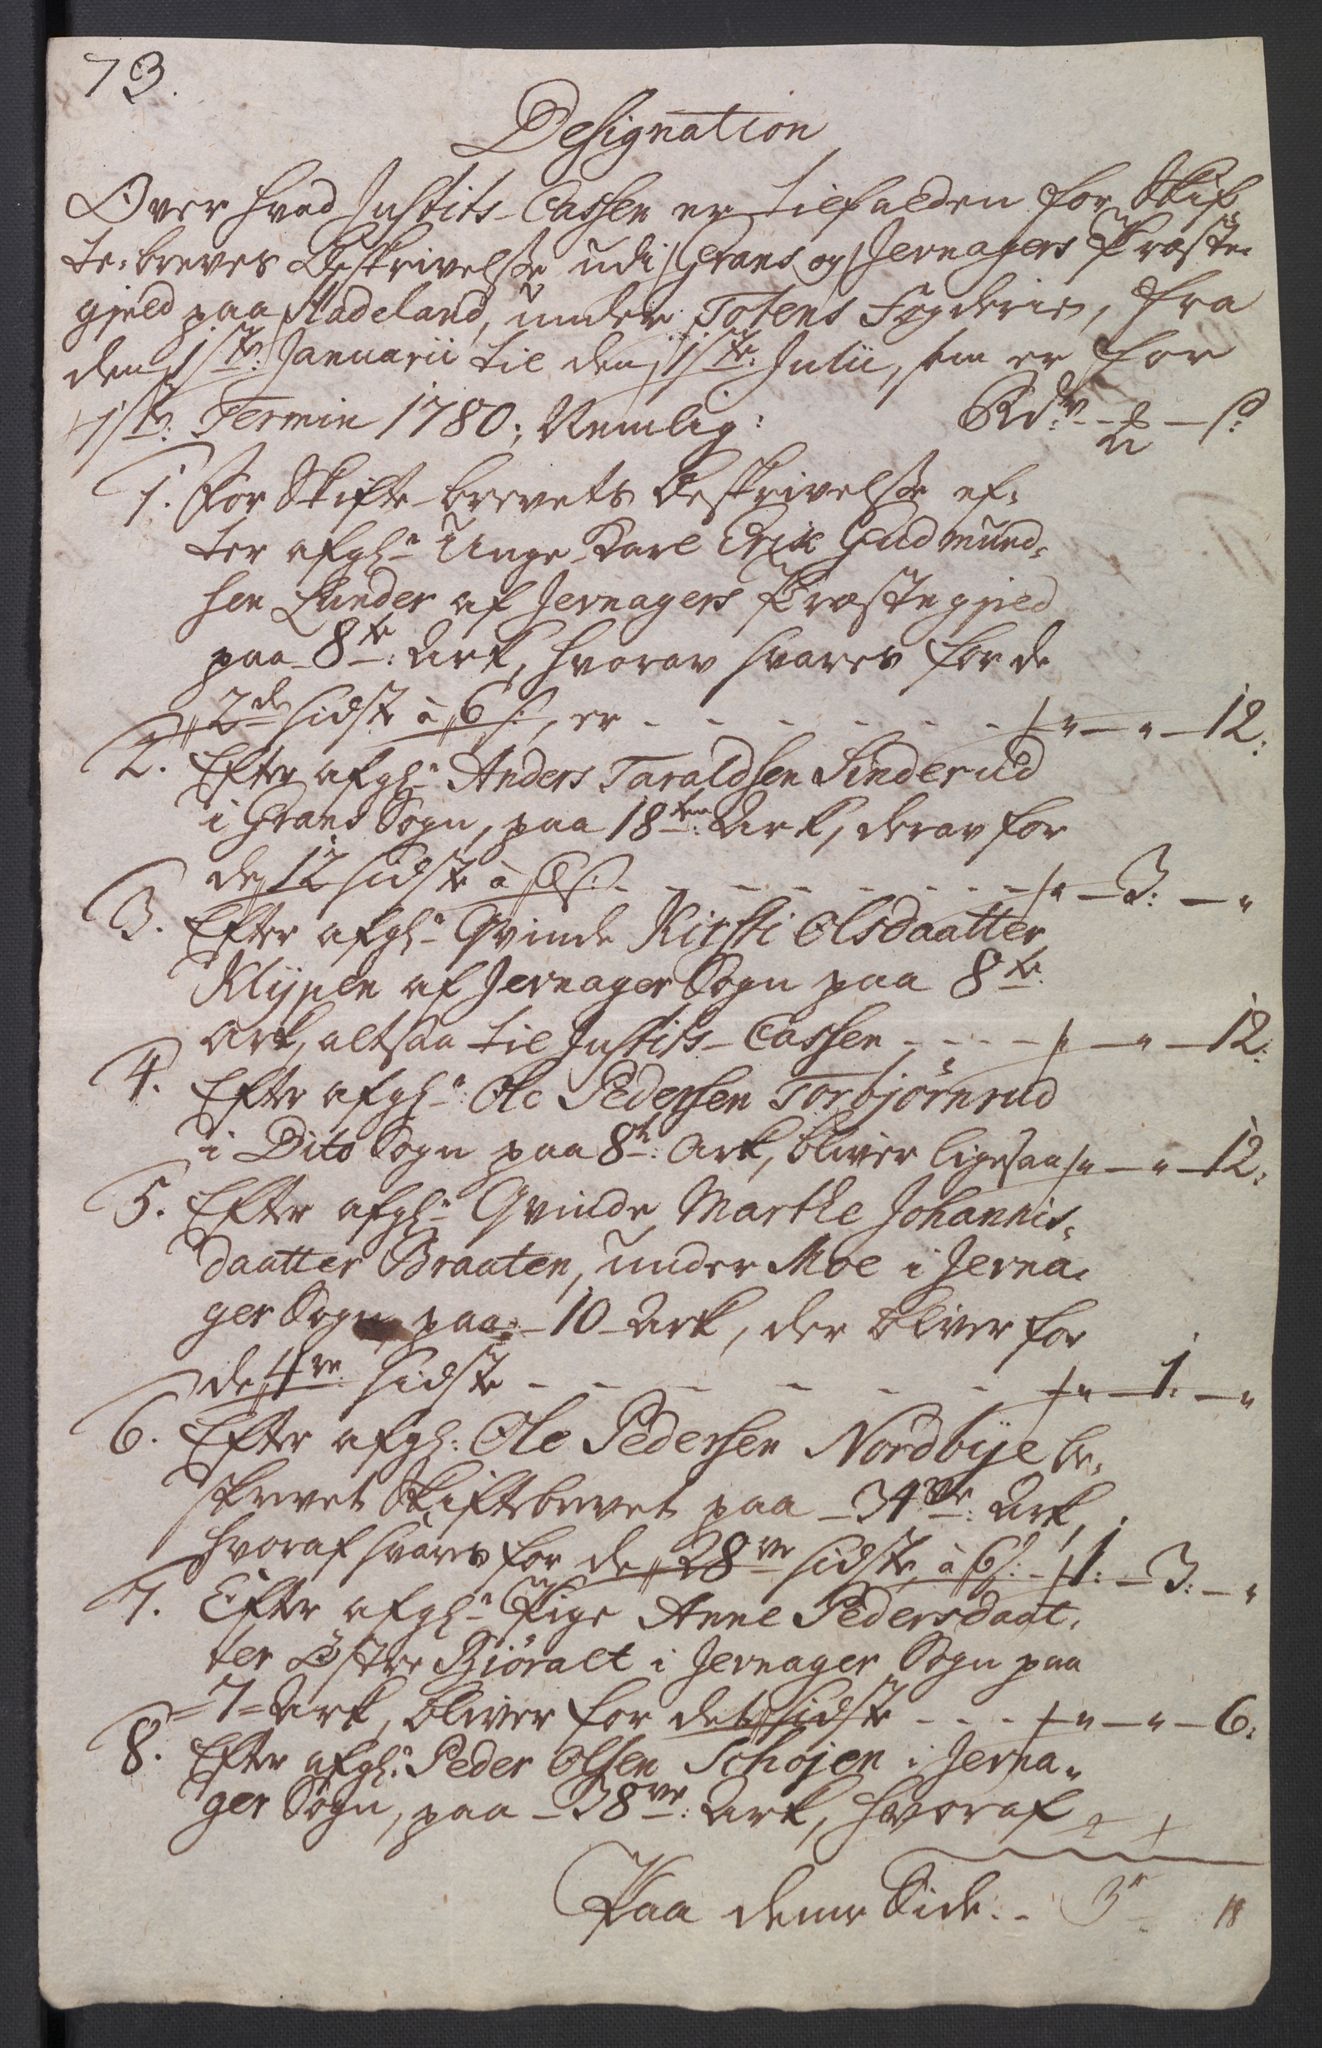 73.
Designation
Over hvad Justits-Cassen er tilfalden for Skif-
te-breves Beskrivelse udi Grans og Jevnagers Præste-
gjeld paa Hadeland, under Totens Fogderie, fra
den 1ste Januarii til den 1ste Julii, som er for
1ste Termin 1780; Nemlig: Rdr - - s:
1. For Skifte-brevets Beskrivelse ef-
ter afgl: Unge Karl Erik Gudmund-
sen Lunder af Jevnagers Præstegjeld
paa 8te: Ark, hvorav svares for de
2de sidste à 6 s:, er - - - - - - " - " - 12:
2. Efter afgl: Anders Taraldsen Sinderud
i Grans Sogn, paa 18ten: Ark, derav for
de 12 sidste à - - - - - - - " - 3: - "
3. Efter afgl: Qvinde Kirsti Olsdaatter
Klypen af Jevnager Sogn paa 8te:
Ark, altsaa til Justits-Cassen - - - - " - " - 12:
4. Efter afgl: Ole Pedersen Torbjørnrud
i Dito Sogn paa 8te: Ark, bliver ligesaa " - " - 12:
5. Efter afgl: Qvinde Marthe Johannis-
daatter Braaten, under Moe i Jevna-
ger Sogn paa - 10 - Ark, der bliver for
de 4re: sidste - - - - - - - " - 1: - "
6. Efter afgl: Ole Pedersen Nordbye be-
skrevet Skiftebrevet paa - 34 Ark,
hvoraf svares for de 28ve sidste, à 6 s: - 1: - 3: - "
7. Efter afgl: Pige Anne Pedersdaat-
ter Østre Bjøralt i Jevnager Sogn paa
= 7 = Ark, bliver for det 1 sidste - - - " - " - 6:
8. Efter afgl: Peder Olsen Schøjen i Jevna-
ger Sogn, paa - 38ve: Ark, hvoraf
Paa denne Side: - 3 " 18